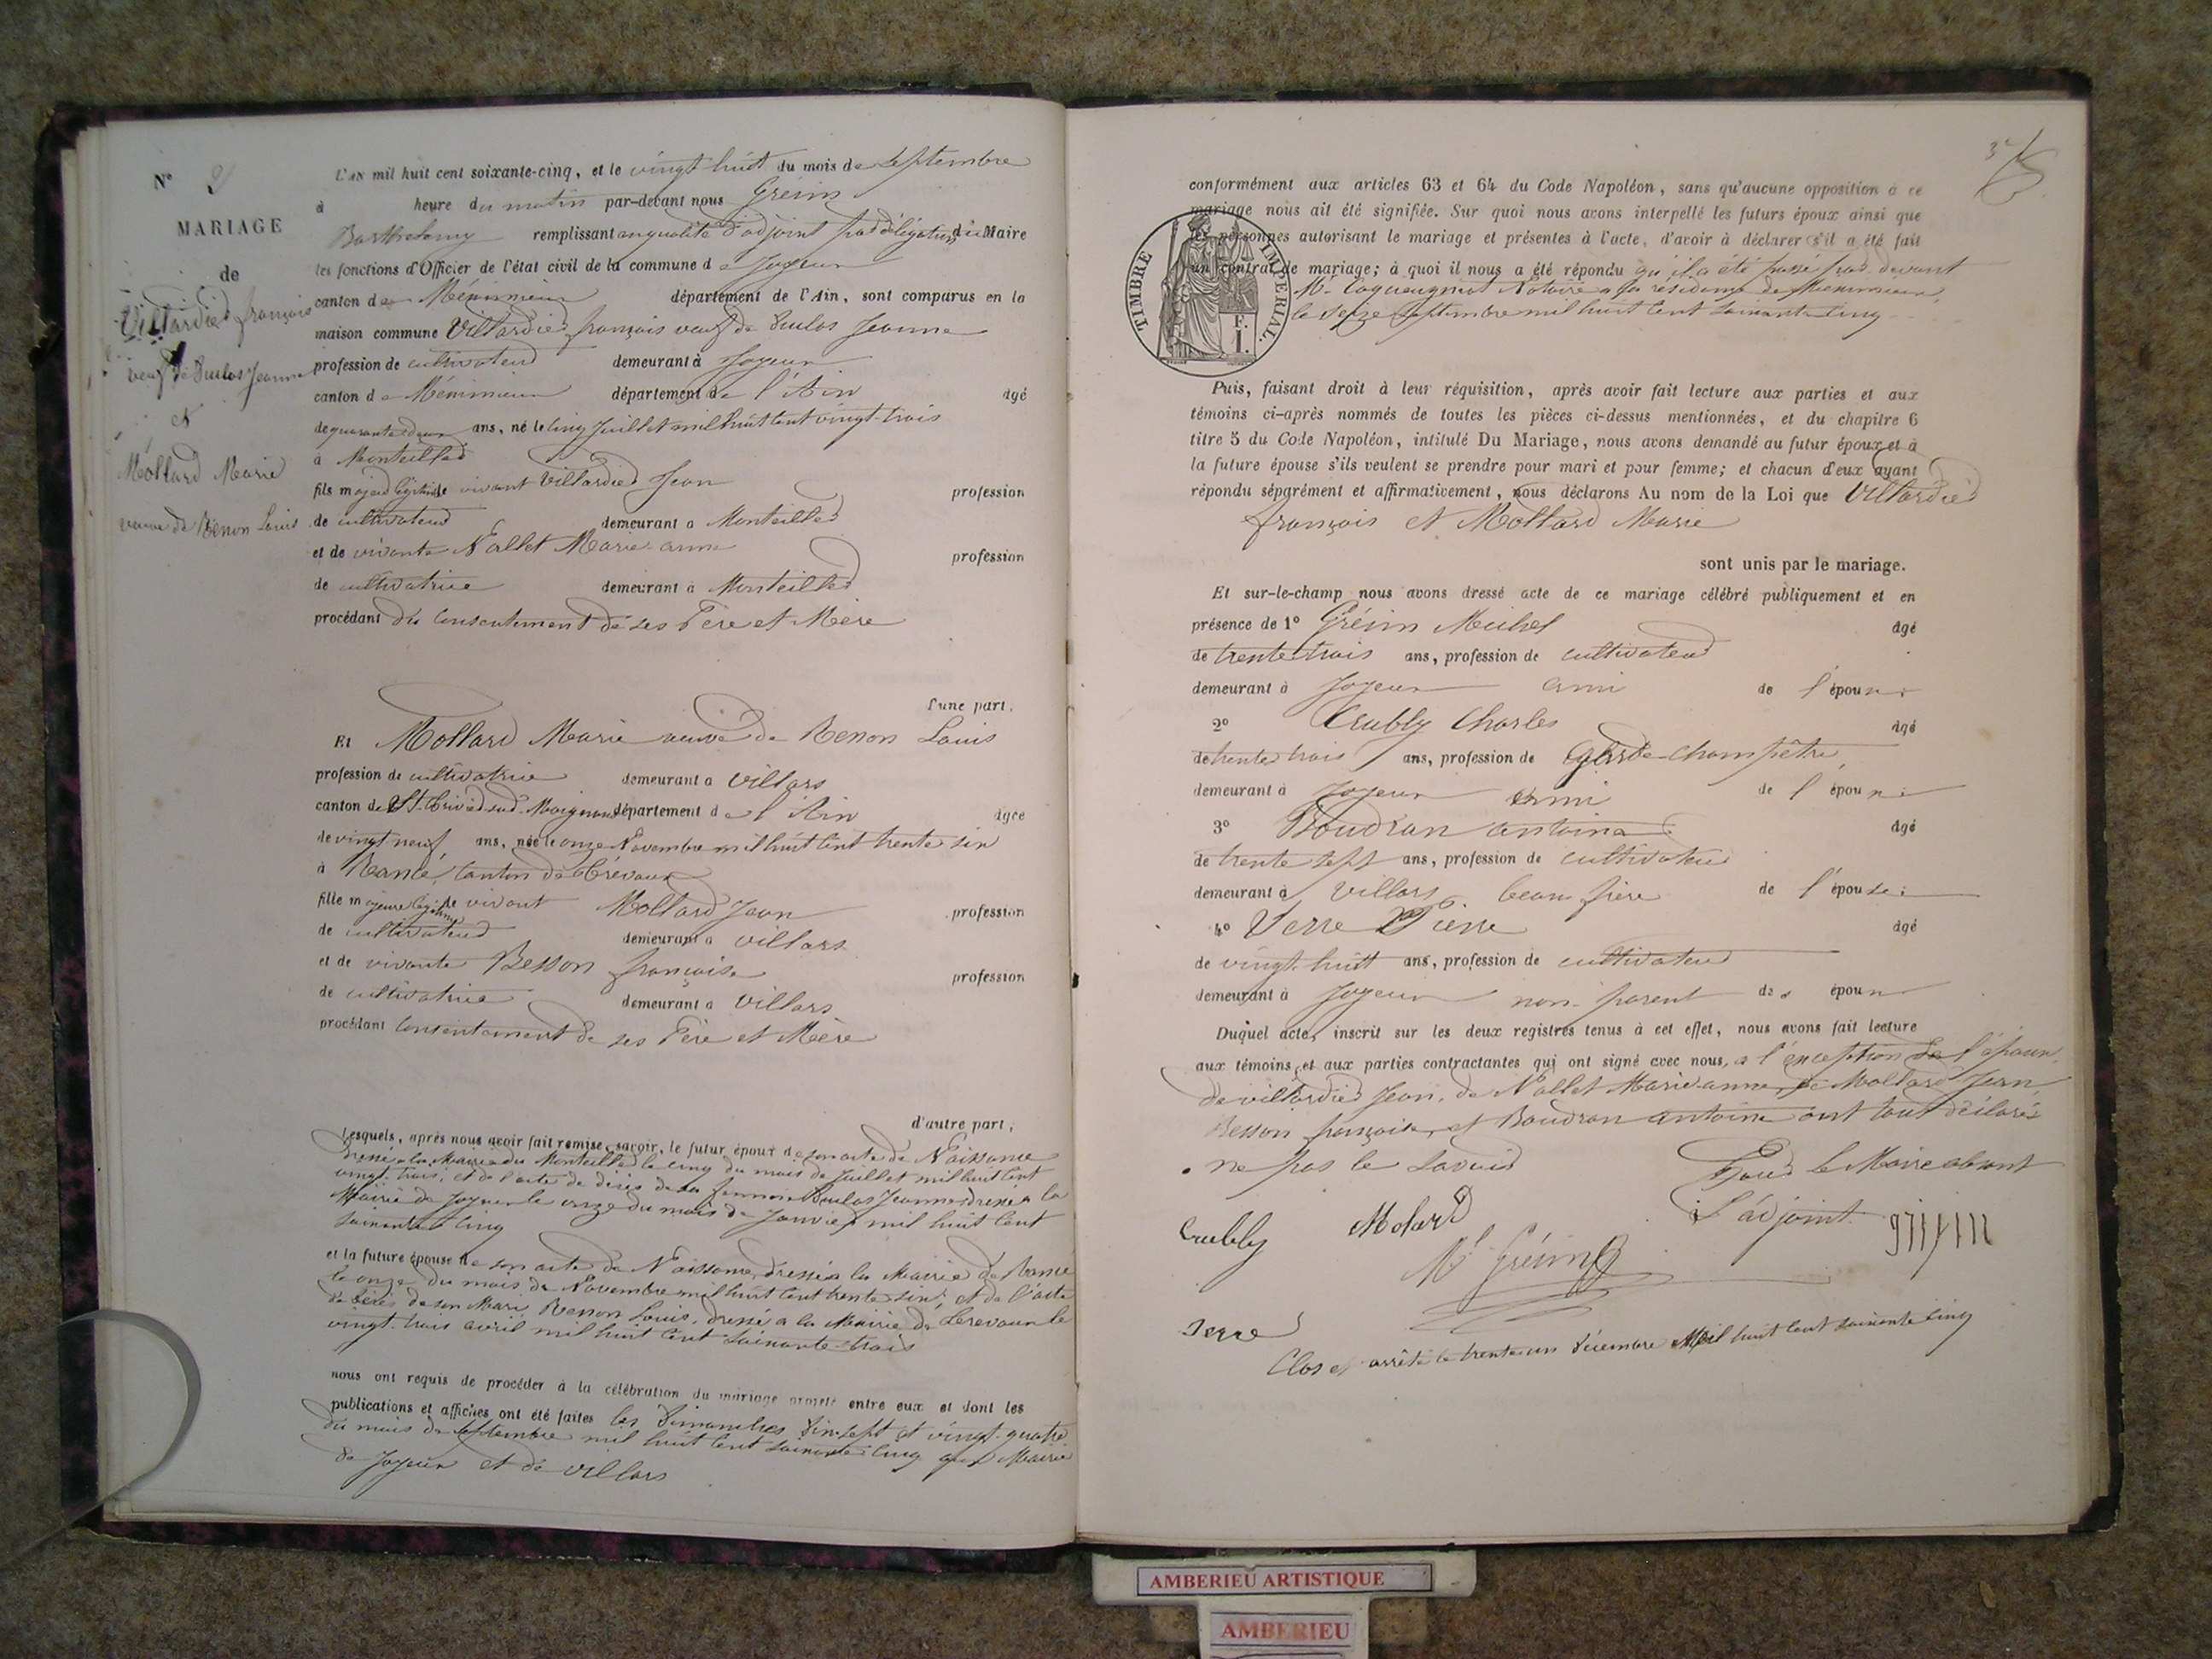 N° 2
MARIAGE
de
Villardier françois
veuf de Duclos Jeanne
et
Mollard Marie
veuve de Renon Louis
L'AN mil huit cent soixante-cinq, et le vingt huit du mois de Septembre
à heure du matin par-devant nous Grévin
Barthelemy remplissant en qualité d'adjoint par délégation du Maire
les fonctions d'Officier de l'état civil de la commune de Joyeux
canton de Méximieux département de l'Ain, sont comparus en la
maison commune Villardier françois veuf de Duclos Jeanne
profession de cultivateur demeurant à Joyeux
canton de Méximieux département de l'Ain âgé
de quarante deux ans, né le cinq Juillet mil huit cent vingt-trois
à Montellier
fils majeur légitime de vivant Villardier Jean profession
de cultivateur demeurant à Montellier
et de vivante Nallet Marie-anne profession
de cultivatrice demeurant à Montellier
procédant du consentement de ses Père et Mère
d'une part.
Et Mollard Marie veuve de Renon Louis
profession de cultivatrice demeurant à Villars
canton de St Trivier sur Moignans département de l'Ain âgée
de vingt neuf ans, née le onze Novembre mil huit cent trente six
à Rancé, Canton de Trévoux
fille majeure légitime de vivant Mollard Jean profession
de cultivateur demeurant à Villars
et de vivante Besson françoise profession
de cultivatrice demeurant à Villars
procédant consentement de ses Père et Mère
d'autre part;
Lesquels, après nous avoir fait remise, savoir, le futur époux de son acte de Naissance
dressé a la Mairie du Montellier le cinq du mois de Juillet mil huit cent
vingt-trois, et de l'acte de décès de sa femme Duclos Jeanne, dressé a la
Mairie de Joyeux le onze du mois de Janvier mil huit cent
soixante cinq
et la future épouse de son acte de Naissance, dressé a la Mairie de Rancé
le onze du mois de Novembre mil huit cent trente six, et de l'acte
de décès de son Mari, Renon Louis, dressé a la Mairie de le
vingt-trois avril mil huit cent soixante-trois
nous ont requis de procéder à la célébration du mariage projeté entre eux et dont les
publications et affiches ont été faites les Dimanches dix-sept et vingt-quatre
du mois de Septembre mil huit cent soixante cinq aux Mairie
de Joyeux et de Villars
conformément aux articles 63 et 64 du Code Napoléon, sans qu'aucune opposition à ce
mariage nous ait été signifiée. Sur quoi nous avons interpellé les futurs époux ainsi que
les personnes autorisant le mariage et présentes à l'acte, d'avoir à déclarer s'il a été fait
un contrat de mariage; à quoi il nous a été répondu qu'il a été passé par devant
Me Coqueugniot Notaire a la résidence de Meximieux,
le seize Septembre mil huit cent soixante cinq
TIMBRE IMPERIAL.
F.
1.
Puis, faisant droit à leur réquisition, après avoir fait lecture aux parties et aux
témoins ci-après nommés de toutes les pièces ci-dessus mentionnées, et du chapitre 6
titre 5 du Code Napoléon, intitulé Du Mariage, nous avons demandé au futur époux et à
la future épouse s'ils veulent se prendre pour mari et pour femme; et chacun d'eux ayant
répondu séparément et affirmativement, nous déclarons Au nom de la Loi que Villardier
françois et Mollard Marie
sont unis par le mariage.
Et sur-le-champ nous avons dressé acte de ce mariage célébré publiquement et en
présence de 1° Grévin Michel âgé
de trente trois ans, profession de cultivateur
demeurant à Joyeux ami de l'époux
2° Crubly Charles âgé
de trente trois ans, profession de Garde-champêtre
demeurant à Joyeux ami de l'époux
3° Boudran antoine âgé
de trente sept ans, profession de cultivateur
demeurant à Villars beau frère de l'épouse
4° Verre Pierre âgé
de vingt-huit ans, profession de cultivateur
demeurant à Joyeux non-parent des époux
Duquel acte, inscrit sur les deux registres tenus à cet effet, nous avons fait lecture
aux témoins et aux parties contractantes qui ont signé avec nous, a l'exception de l'époux,
de villardier Jean, de Nallet Marie-anne, de Mollard Jean
Besson françoise, et Boudran antoine ont tout déclarés
ne pas le savoir
Pour le Maire absent
L'adjoint
Crubly
Molard
Ml Grévin
Clos et arrêté le trente un Décembre Mil huit cent soixante cinq
AMBERIEU ARTISTIQUE
AMBERIEU